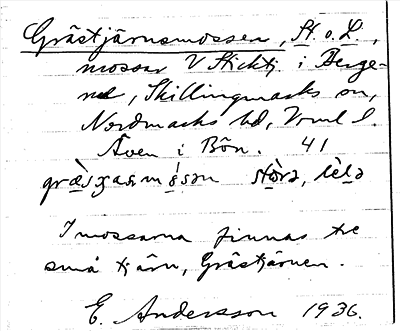 Grästjärnsmossen, St. o. L.,
mossar V Sticktj. i Berge-
ne, Skillingmarks sn,
Nordmarks hd, Vrml l.
Även i Bön. 41
stòra, lèla
I mossarna finnas tre
små tjärn, Grästjärnen.
E. Andersson 1936.